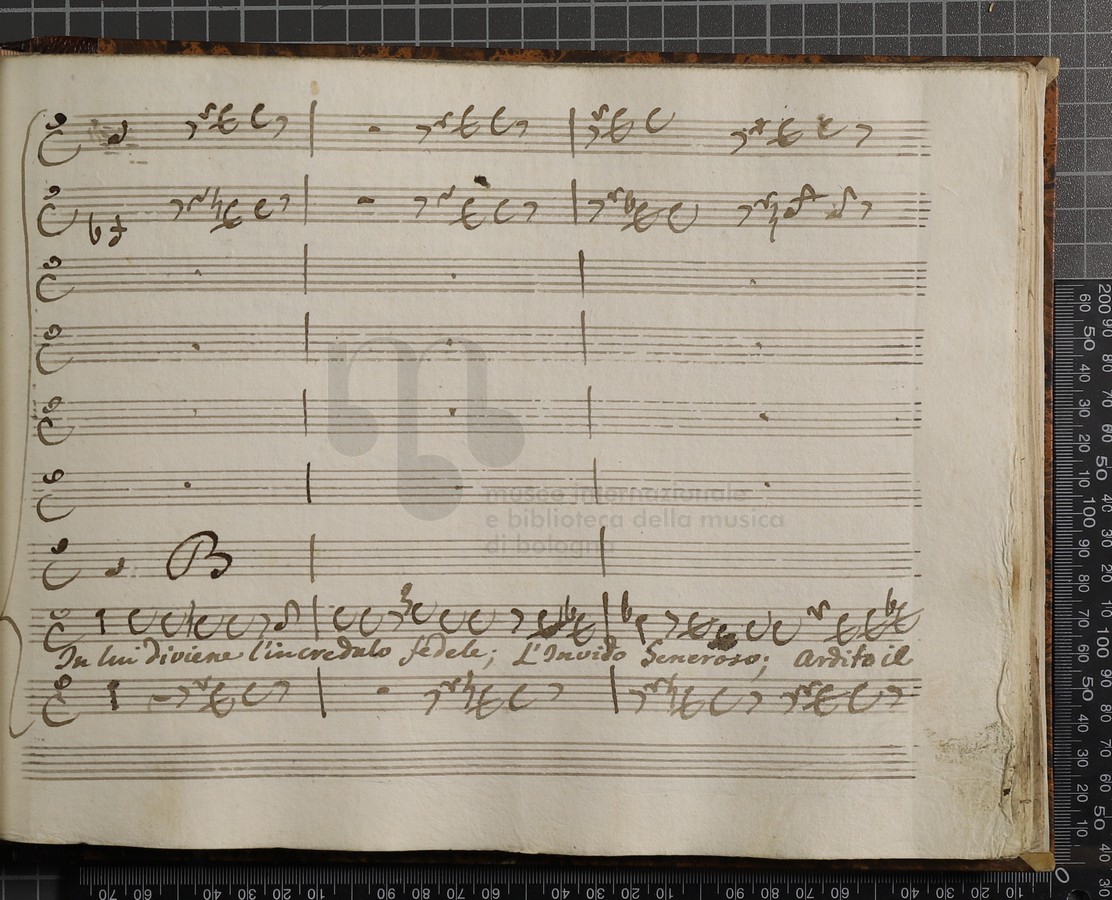 In lui diviene l'incredulo fedele; L'Invido Generoso; ardito il
museo internazionale
e biblioteca della musica
di bologna